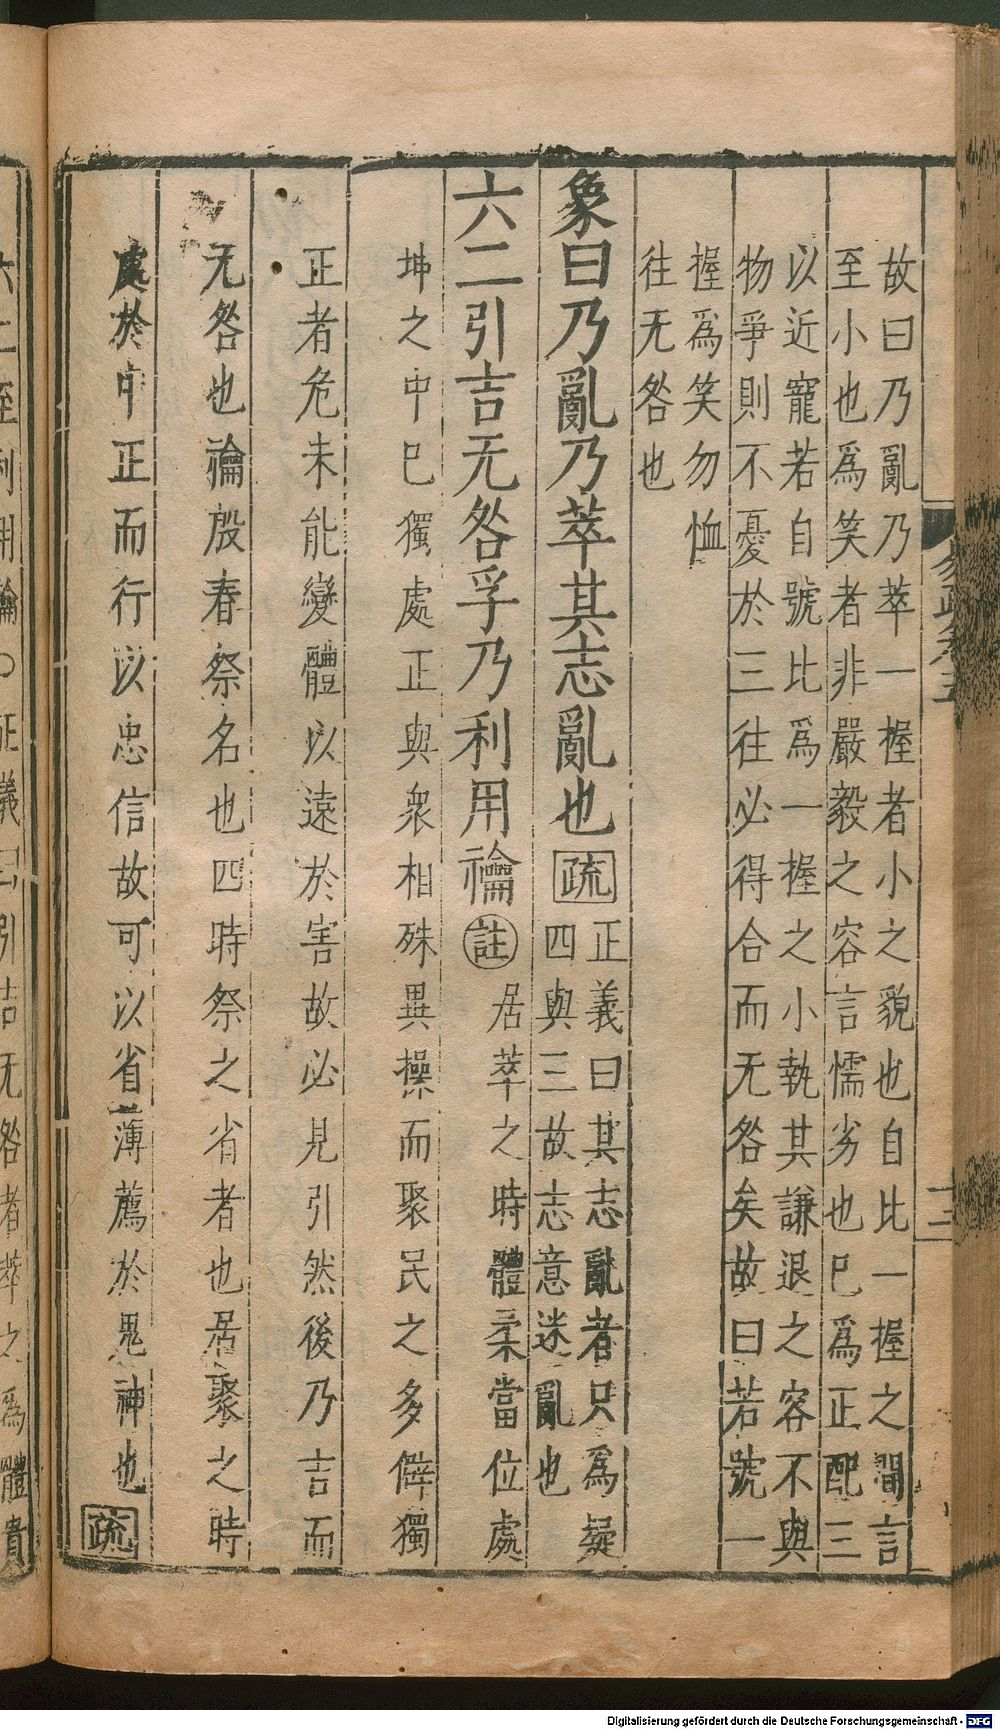 故曰乃亂乃萃一握者小之貌也自比一握之間言
至小也爲笑者非嚴毅之容言懦劣也巳爲正配三
以近寵若自號比爲一握之小執其謙退之容不與
物爭則不憂於三往必得合而无咎矣故曰若號一
握爲笑勿恤
往无咎也
象曰乃亂乃萃其志亂也疏
正義曰其志亂者只爲疑
四與三故志意迷亂也
六二引吉无咎孚乃利用禴註居萃之時體柔當位處
坤之中巳獨處正與衆相殊異操而聚民之多僻獨
正者危未能變體以遠於害故必見引然後乃吉而
无咎也禴殷春祭名也四時祭之省者也居聚之時
處於中正而行以忠信故可以省薄薦於鬼神也疏
易疏卷五
十三
六二至利用禴○正義曰引吉无咎者萃之爲體貴
Digitalisierung gefördert durch die Deutsche Forschungsgemeinschaft - DFG